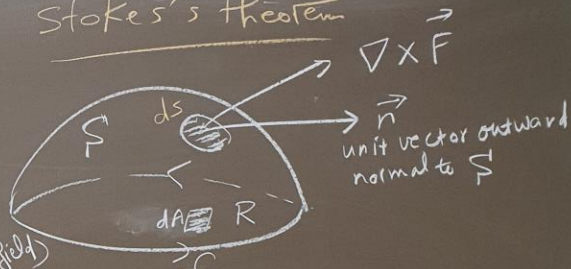 Stokes's theorem
∇ × F⃗
ds
n⃗
S
unit vector outward
normal to S
dA R
field)
C